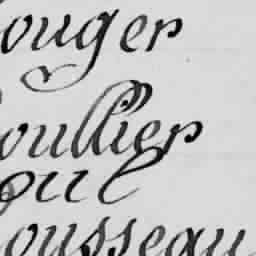 ouger
oullier
oue
ousseau